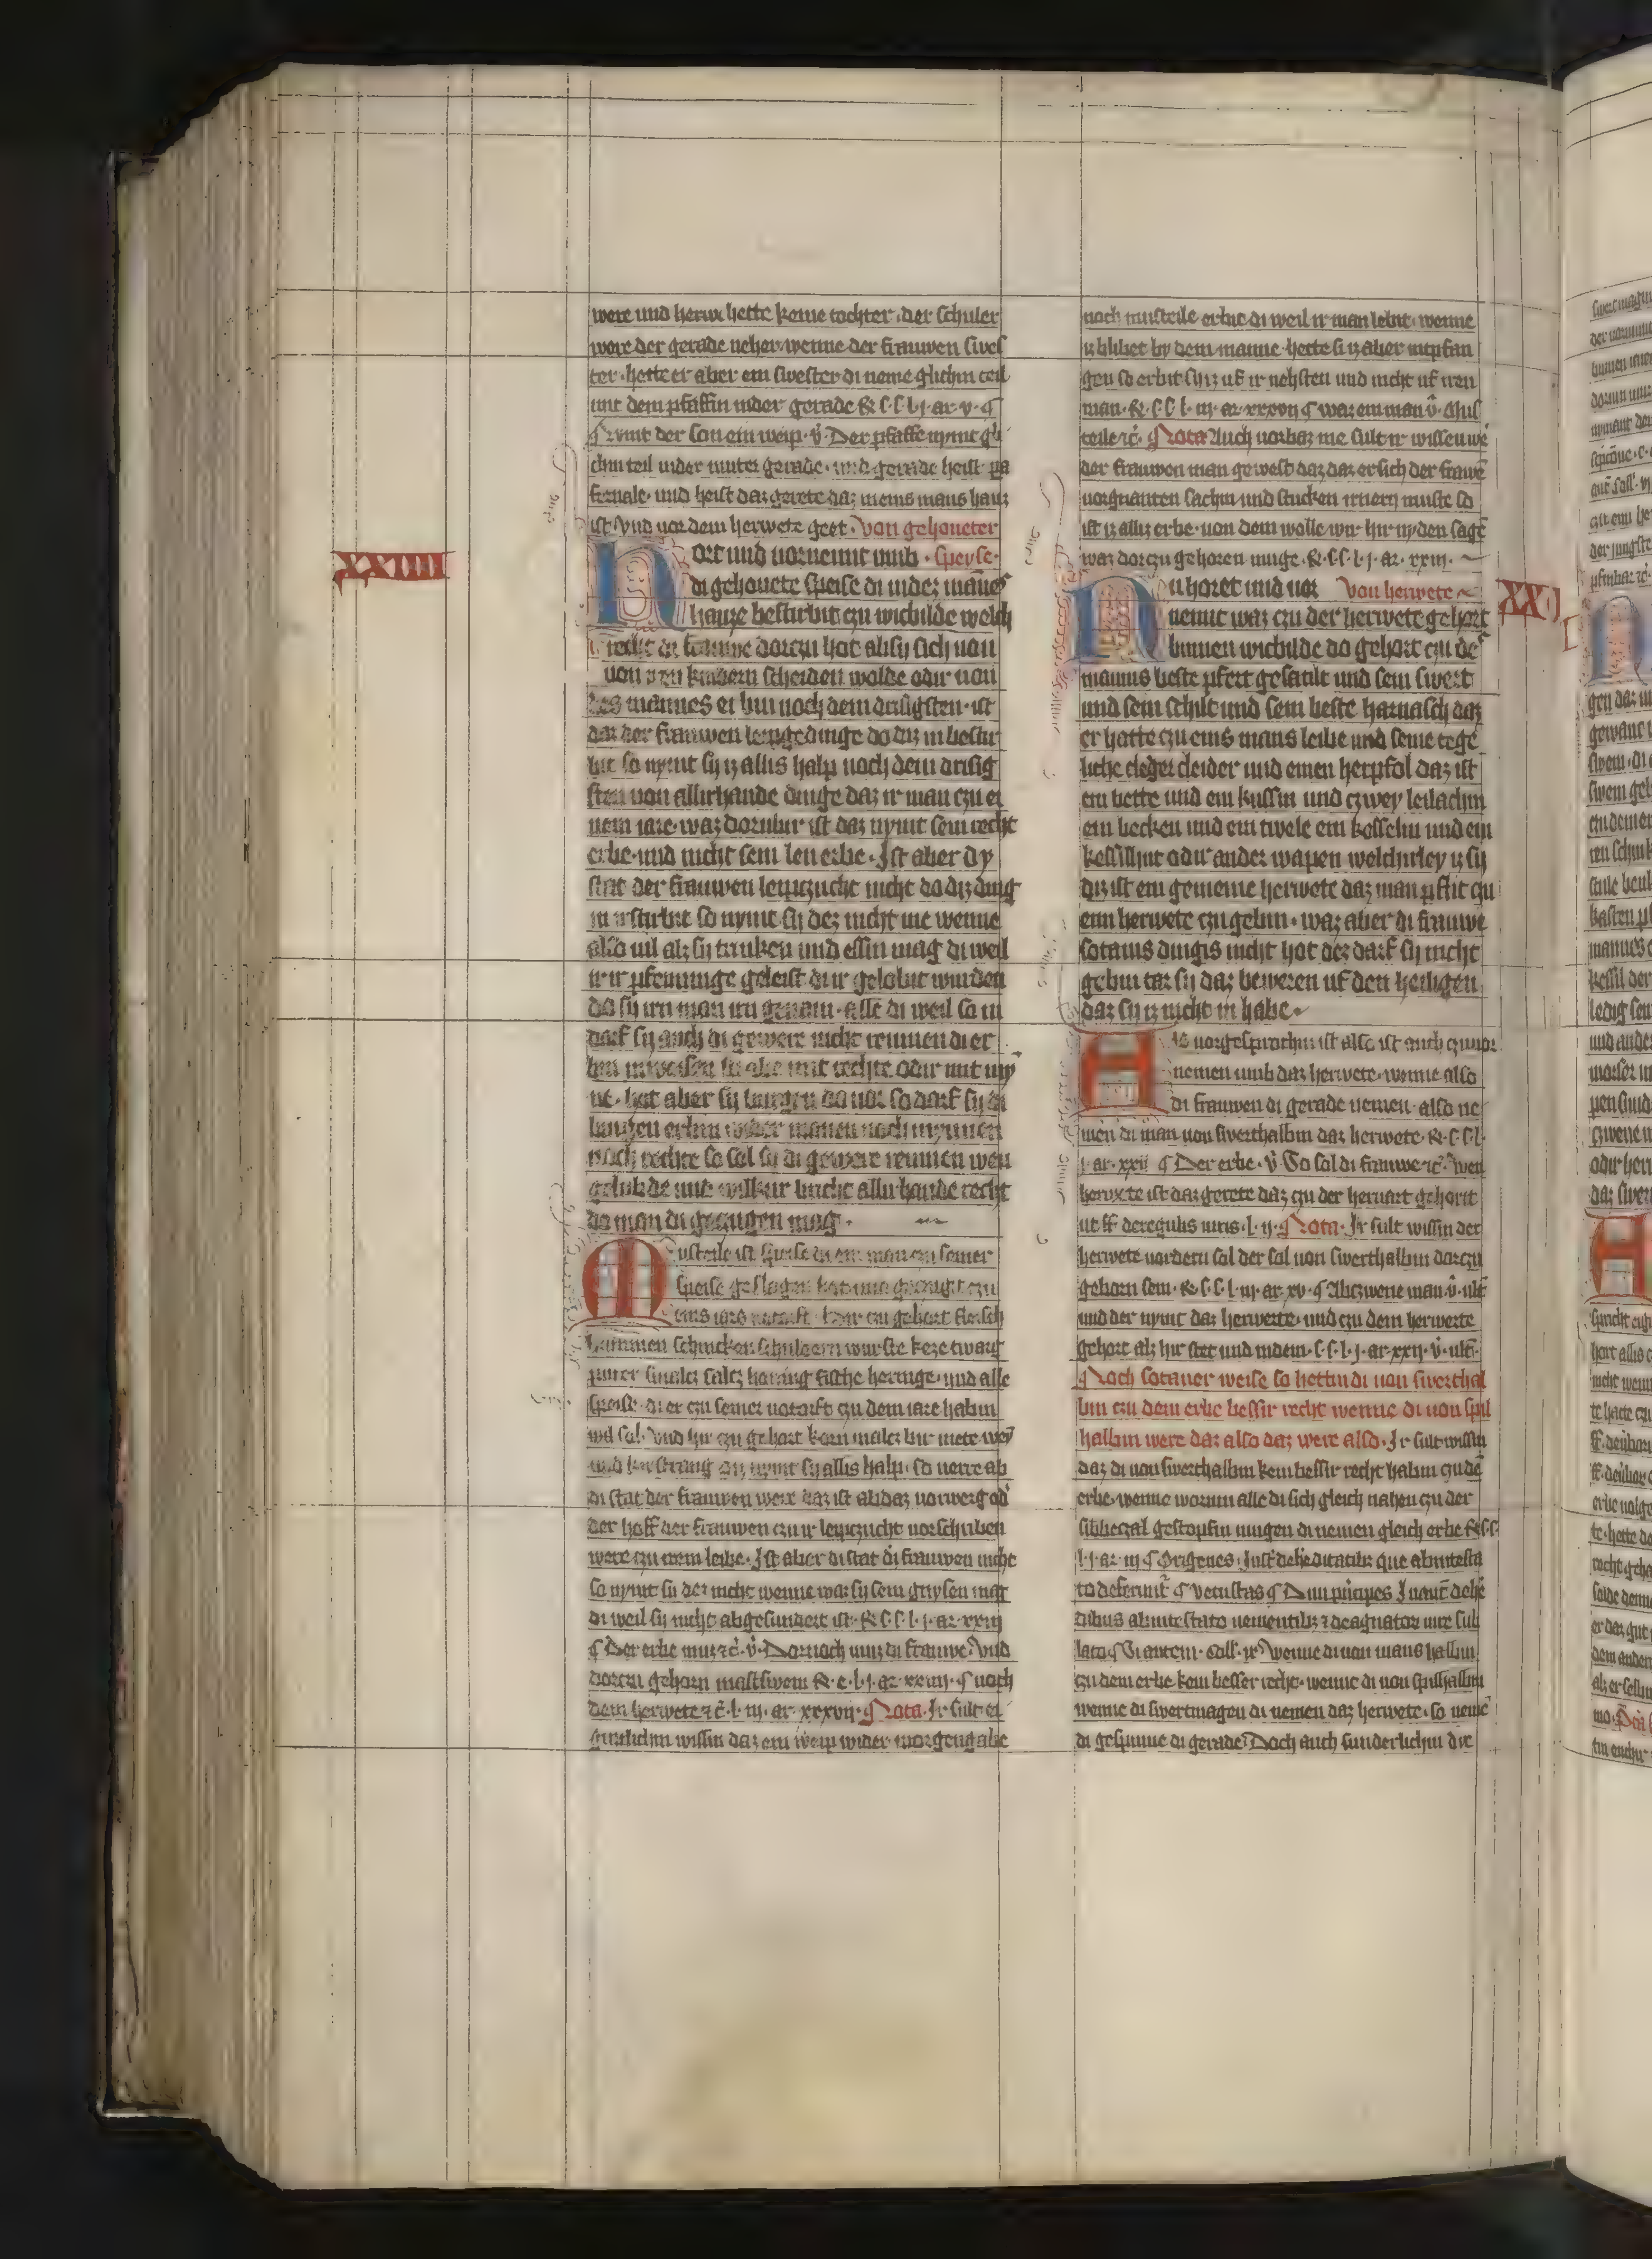 were und herwe hette keine tochter · der schuler
were der gerade neher wenne der frauwen swes
ter · hette er aber ein swester di neme glichin teil
mit dem pfaffin in der gerade R. s. s. l. j. ar. v. ¶
Nymt der son ein weip · v̊ · Der pfaffe nymt gli
chin teil in der muter gerade · und gerade heist pa
fernale · und heist daz gerete daz in eins mans hauz
ist Und vor dem herwete geet · Von gehoueter
XXIIII
Hort und vornemt umb · speyse ·
di gehouete speise di in dez mānes
hauze besturbit czu wichilde welch
recht di frauwe dorczu hot ab sy sich von
von iren kindern scheiden wolde odir von
des mannes erbin noch dem drisigsten · ist
daz der frauwen leipgedinge do diz in bestir
bit so nymt sy iz allis halp noch dem drisig
sten von allirhande dinge daz ir man czu ei
nem iare · waz dorubir ist daz nymt sein recht
erbe · und nicht sein len erbe · Ist aber dy
stat der frauwen leipczucht nicht do diz ding
in irsturbit so nymt sy dez nicht me wenne
also vil alz sy trinken und essin mag di weil
ir ir pfenninge geleist di ir gelobit wurden
do sy irn man irn genam · alle di weil so in
darf sy auch di gewere nicht reumen di er
ben in weisen si abe mit rechte odir mit my
ne · hat aber sy burgen do vor so darf sy di
burgen erbin wider manen noch in mynnen
noch rechte so sol sy di gewere reumen wen
gelubde und wilkur bricht allirhande recht
do man di geczugen mag ·
Musteile ist speise di ein man czu seiner
speise geslagen hat und gezeugt czu
eins iars notorft · hir czu gehort fleisch
hammen schincken schuldern wurste keze twarg
puter smalcz salcz honing fische heringe · und alle
speise · di er czu seiner notorft czu dem iare habin
wil sol · Und hir czu gehort korn malcz bir mete wey
und di nymt sy allis halp · so verre ab
di stat der frauwen were daz ist ab daz vorwerg od̾
der hoff der frauwen czu ir leipczucht vorschriben
were czu irem leibe · Ist aber di stat d̾ frauwen nicht
so nymt si dez nicht wenne waz sy sein genysen mag
di weil sy nicht abgesundert ist · R. s. s. l. j. ar. xxiij
¶ Der erbe muz ꝛc̄. v̊. Dornoch muz di frauwe · Und
dorczu gehorn mastswein R. e. l. j. ar. xxiiij. ¶ noch
dem herwete ꝛc̄. l. iij. ar. xxxvij. Nota · Ir sult ei
gintlichin wissin daz ein weip wider morgengabe
noch musteile erbit di weil ir man lebit · wenne
iz blibet by dem manne · hette si iz aber intpfan
gen so erbit sy iz uf ir nehsten und nicht uf iren
man · R. s. s. l. iij. ar. xxxvij ¶ waz ein man v̊. Mus
teile ꝛc̄. Nota Auch vorbaz me sult ir wissen we
der frauwen man gewest daz daz er sich der frawē
vorgnanten sachin und stucken irnern muste so
ist iz alliz erbe · von dem wolle wir hir nyden sagē
waz dorczu gehoren muge · R. s. s. l. j. ar. xxiij.
Nu horet und vor Von herwete
nemt waz czu der herwete gehort
binnen wichilde do gehort czu de̾
mannis beste pfert gesatilt und sein swert
und sein schilt und sein beste harnasch daz
er hatte czu eins mans leibe und seine tege
liche cleider und einen herpfol daz ist
ein bette und ein kussin und czwey leilachin
ein becken und ein twele ein kesselin und ein
kessilhut odir ander wapen welchirley iz sy
diz ist ein gemeine herwete daz man pflit czu
eim herwete czu gebin · waz aber di frauwe
sotanis dingis nicht hot dez darf sy nicht
gebin tar sy daz beweren uf den heiligen
daz sy iz nicht in habe ·
Als vorgesprochin ist also ist auch czu vor
nemen umb daz herwete · wenne also
di frauwen di gerade nemen · also ne
men di man von swerthalbin daz herwete · R. s. s. l.
j. ar. xxij ¶ Der erbe · v̊ So sol di frauwe ꝛc̄. wen
herwete ist daz gerete daz czu der hervart gehorit
ut ff. de regulis iuris. l. ij. Nota · Ir sult wissin der
herwete vordern sol der sal von swerthalbin dorczu
geborn sein · R. s. s. l. iij. ar. xv. ¶ Ab czwene man v̊. ult̄
und der nymt daz herwete · und czu dem herwete
gehort alz hir stet und in dem. s. s. l. j. ar. xxij. v̊. ult̄.
Noch sotaner weise so hettin di von swerthal
bin czu dem erbe bessir recht wenne di von spil
halbin were daz also daz were also · Ir sult wissin
daz di von swerthalbin kein bessir recht habin czu dē
erbe · wenne worum alle di sich gleich nahen czu der
sibbeczal gestopfin mugen di nemen gleich erbe R. s. s.
l. j. ar. iij ¶ Origenes · Inst̄ de he̾ditatib; que ab intesta
to deferunt̄ ¶ vetustas ¶
dibus ab intestato venientib; ⁊ de agnator iure sub
lato ¶ Si autem · coll. ix · Wenne di von mans halbin
czu dem erbe kein besser recht · wenne di von spilhalbin
wenne di swertmagen di nemen daz herwete · so nemē
di gespinne di gerade · Doch auch sunderlichin die